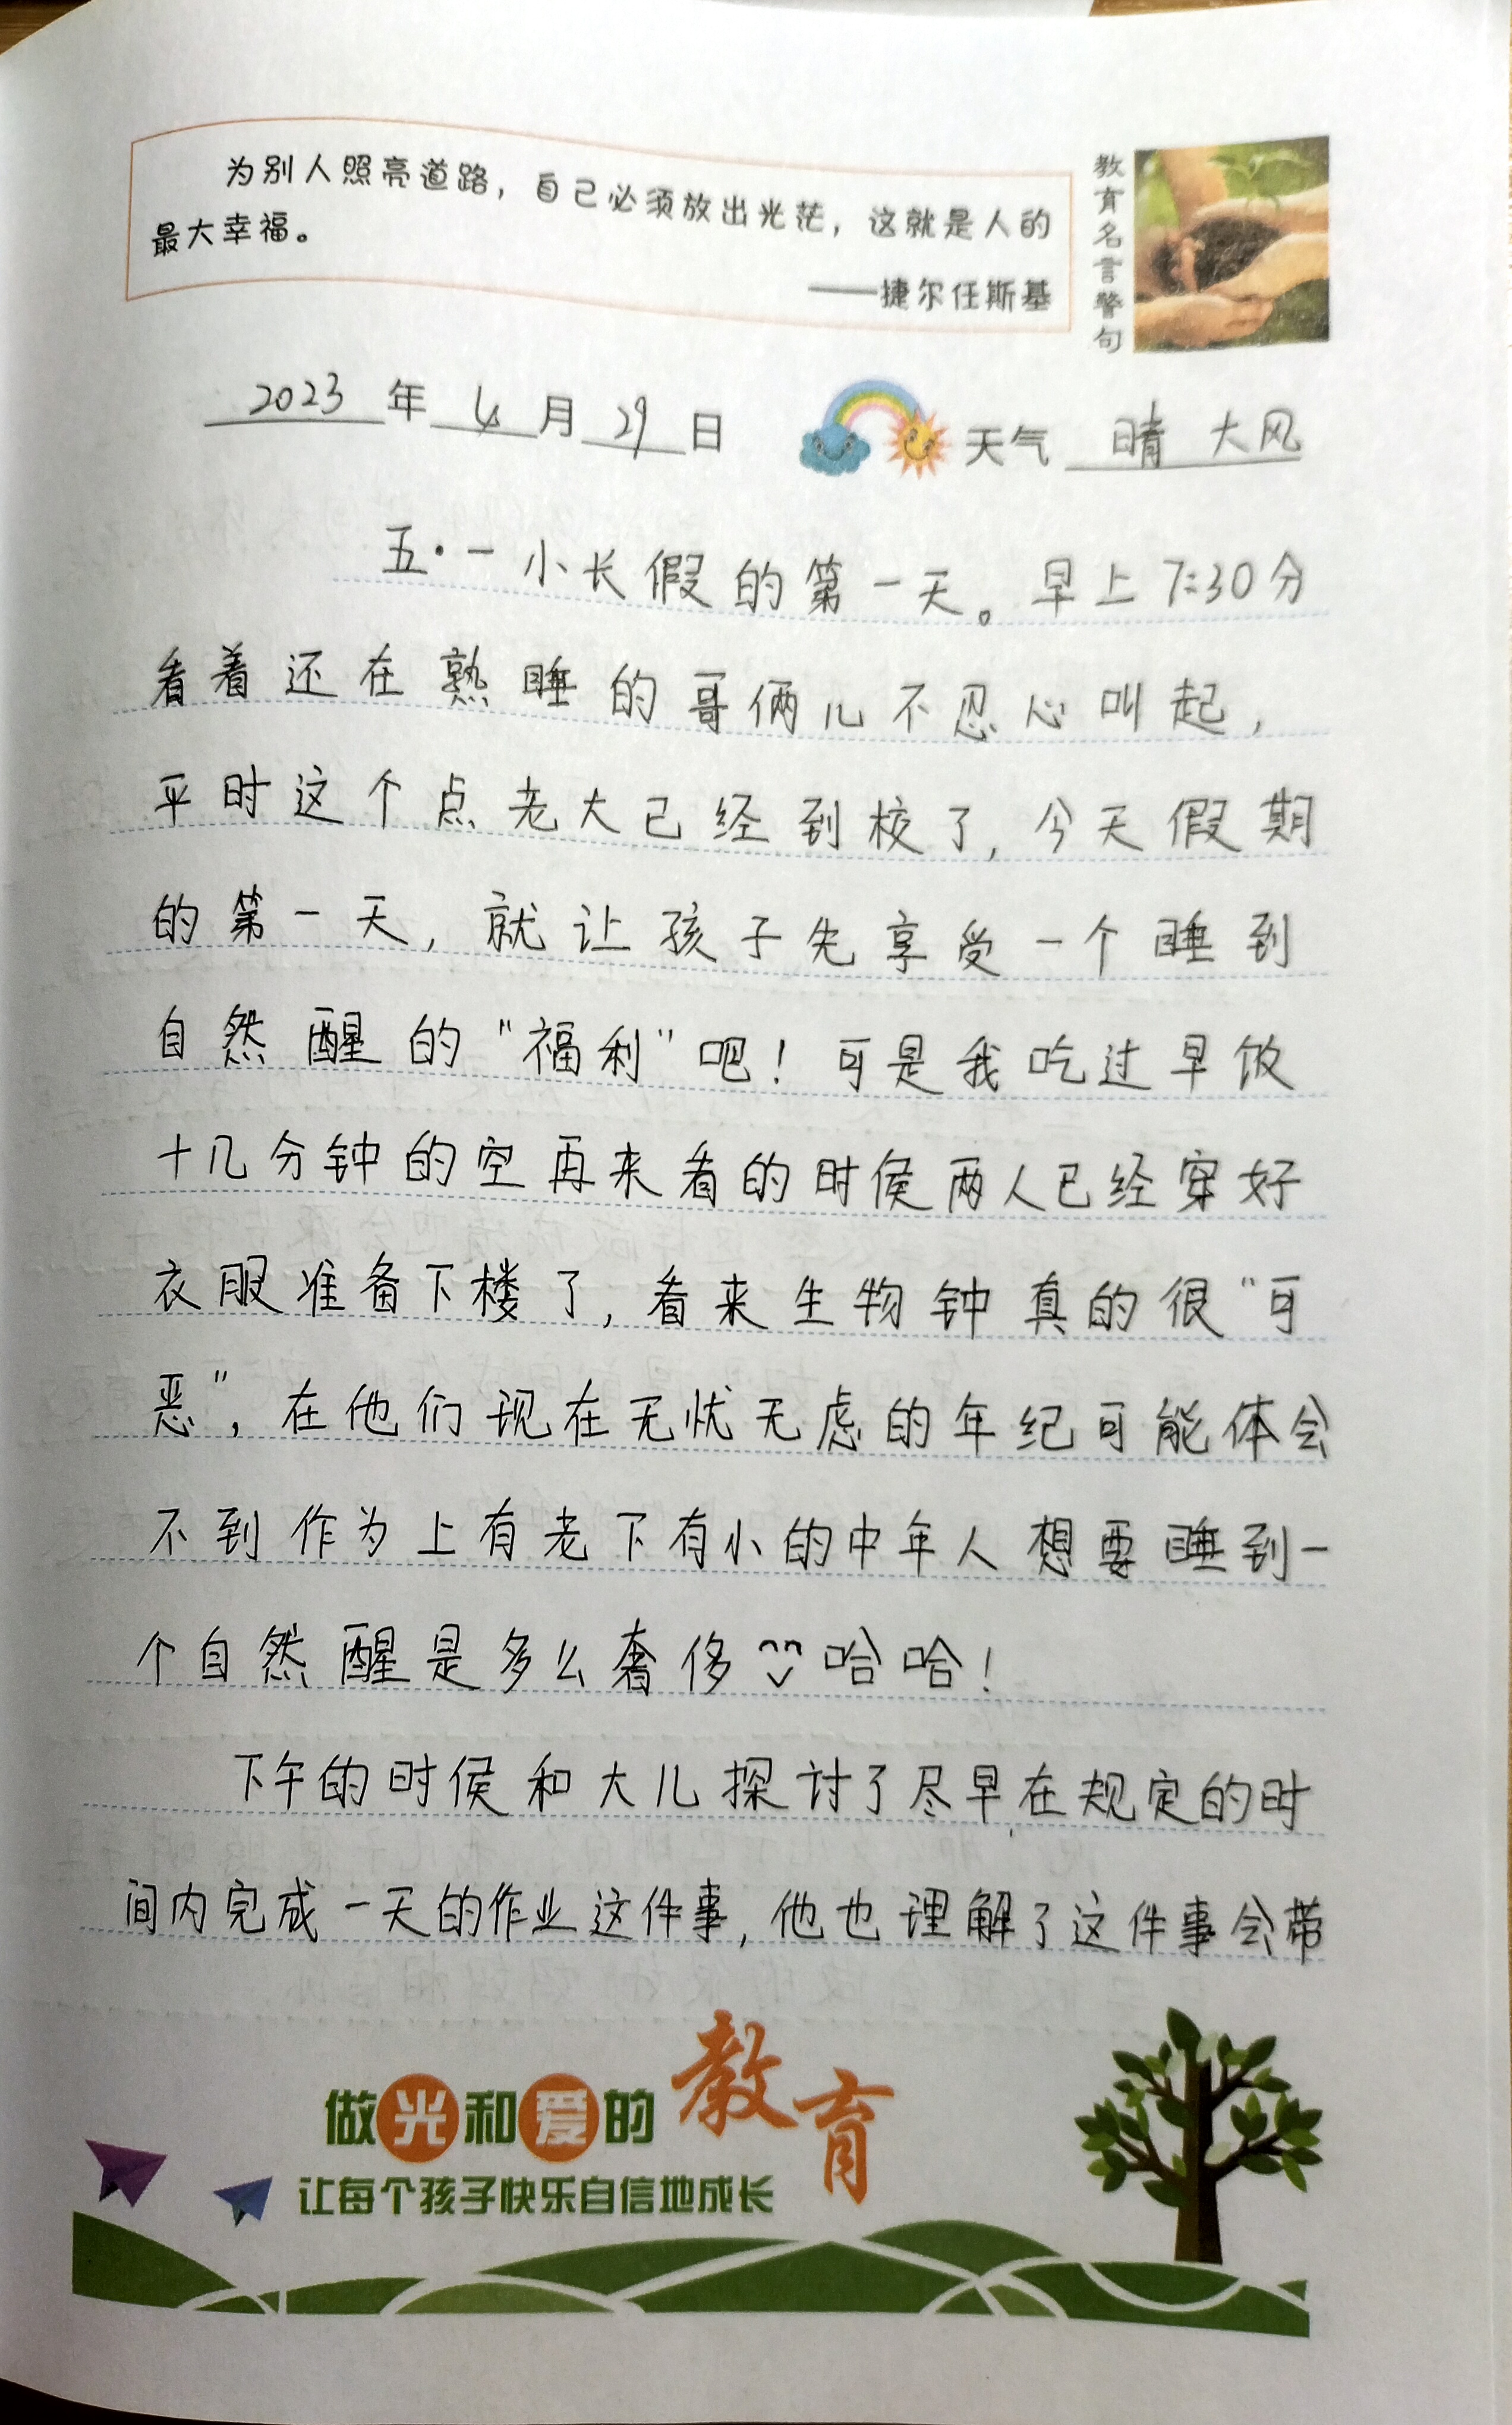 为别人照亮道路，自己必须放出光茫，这就是人的
最大幸福。
——捷尔任斯基
教育名言警句
2023年4月29日 天气 晴 大风
五·一小长假的第一天。早上7:30分
看着还在熟睡的哥俩儿不忍心叫起，
平时这个点老大已经到校了，今天假期
的第一天，就让孩子先享受一个睡到
自然醒的"福利"吧！可是我吃过早饭
十几分钟的空再来看的时侯两人已经穿好
衣服准备下楼了，看来生物钟真的很"可
恶"，在他们现在无忧无虑的年纪可能体会
不到作为上有老下有小的中年人想要睡到一
个自然醒是多么奢侈哈哈！
下午的时侯和大儿探讨了尽早在规定的时
间内完成一天的作业这件事，他也理解了这件事会带
做光和爱的教育
让每个孩子快乐自信地成长